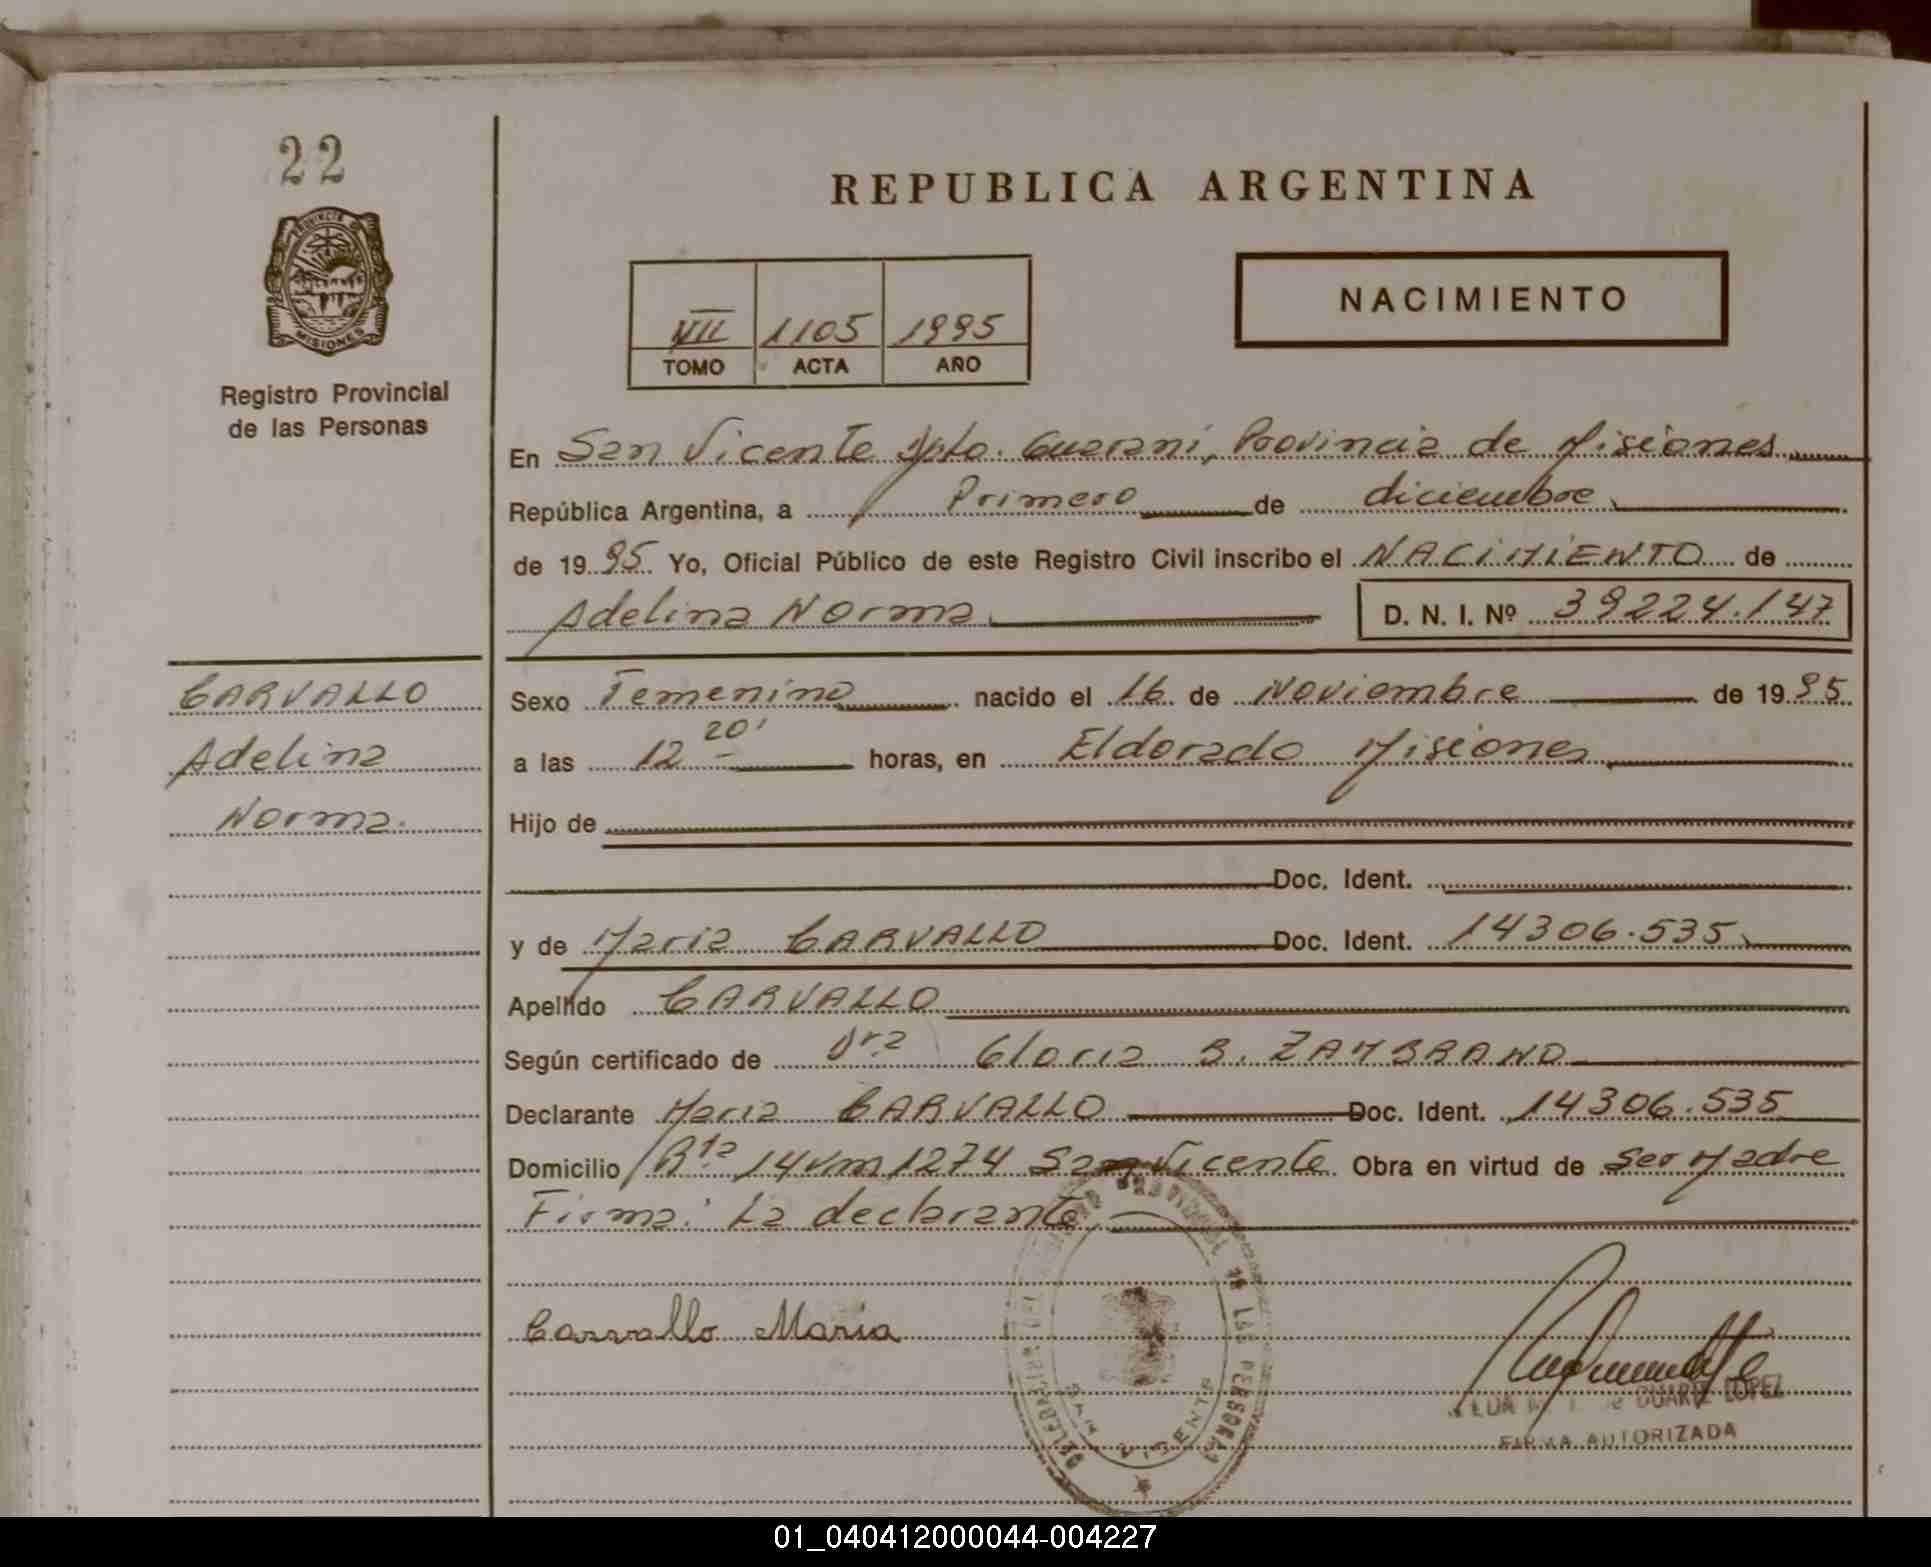 22
PROVINCIA DE
MISIONES
Registro Provincial
de las Personas
REPUBLICA ARGENTINA
VII 1105 1995
TOMO ACTA AÑO
NACIMIENTO
En San Vicente Dpto. Guarani, Provincia de Misiones
República Argentina, a Primero de diciembre
de 1995 Yo, Oficial Público de este Registro Civil inscribo el NACIMIENTO de
Adelina Norma D. N. I. Nº 39224.147
CARVALLO
Adelina
Norma.
Sexo Femenino nacido el 16 de Noviembre de 1995
a las 12 20' horas, en Eldorado Misiones
Hijo de
Doc. Ident.
y de Maria CARVALLO Doc. Ident. 14306.535
Apellido CARVALLO
Según certificado de Dra Gloria B. ZAMBRANO
Declarante Maria CARVALLO Doc. Ident. 14306.535
Domicilio Rta 14 km 1274 San Vicente Obra en virtud de ser Madre
Firma: La declarante.
Carvallo Maria
DELEGACION DEL REGISTRO PROVINCIAL DE LAS PERSONAS
SAN VICENTE
DUARTE LOPEZ
FIRMA AUTORIZADA
01_040412000044-004227